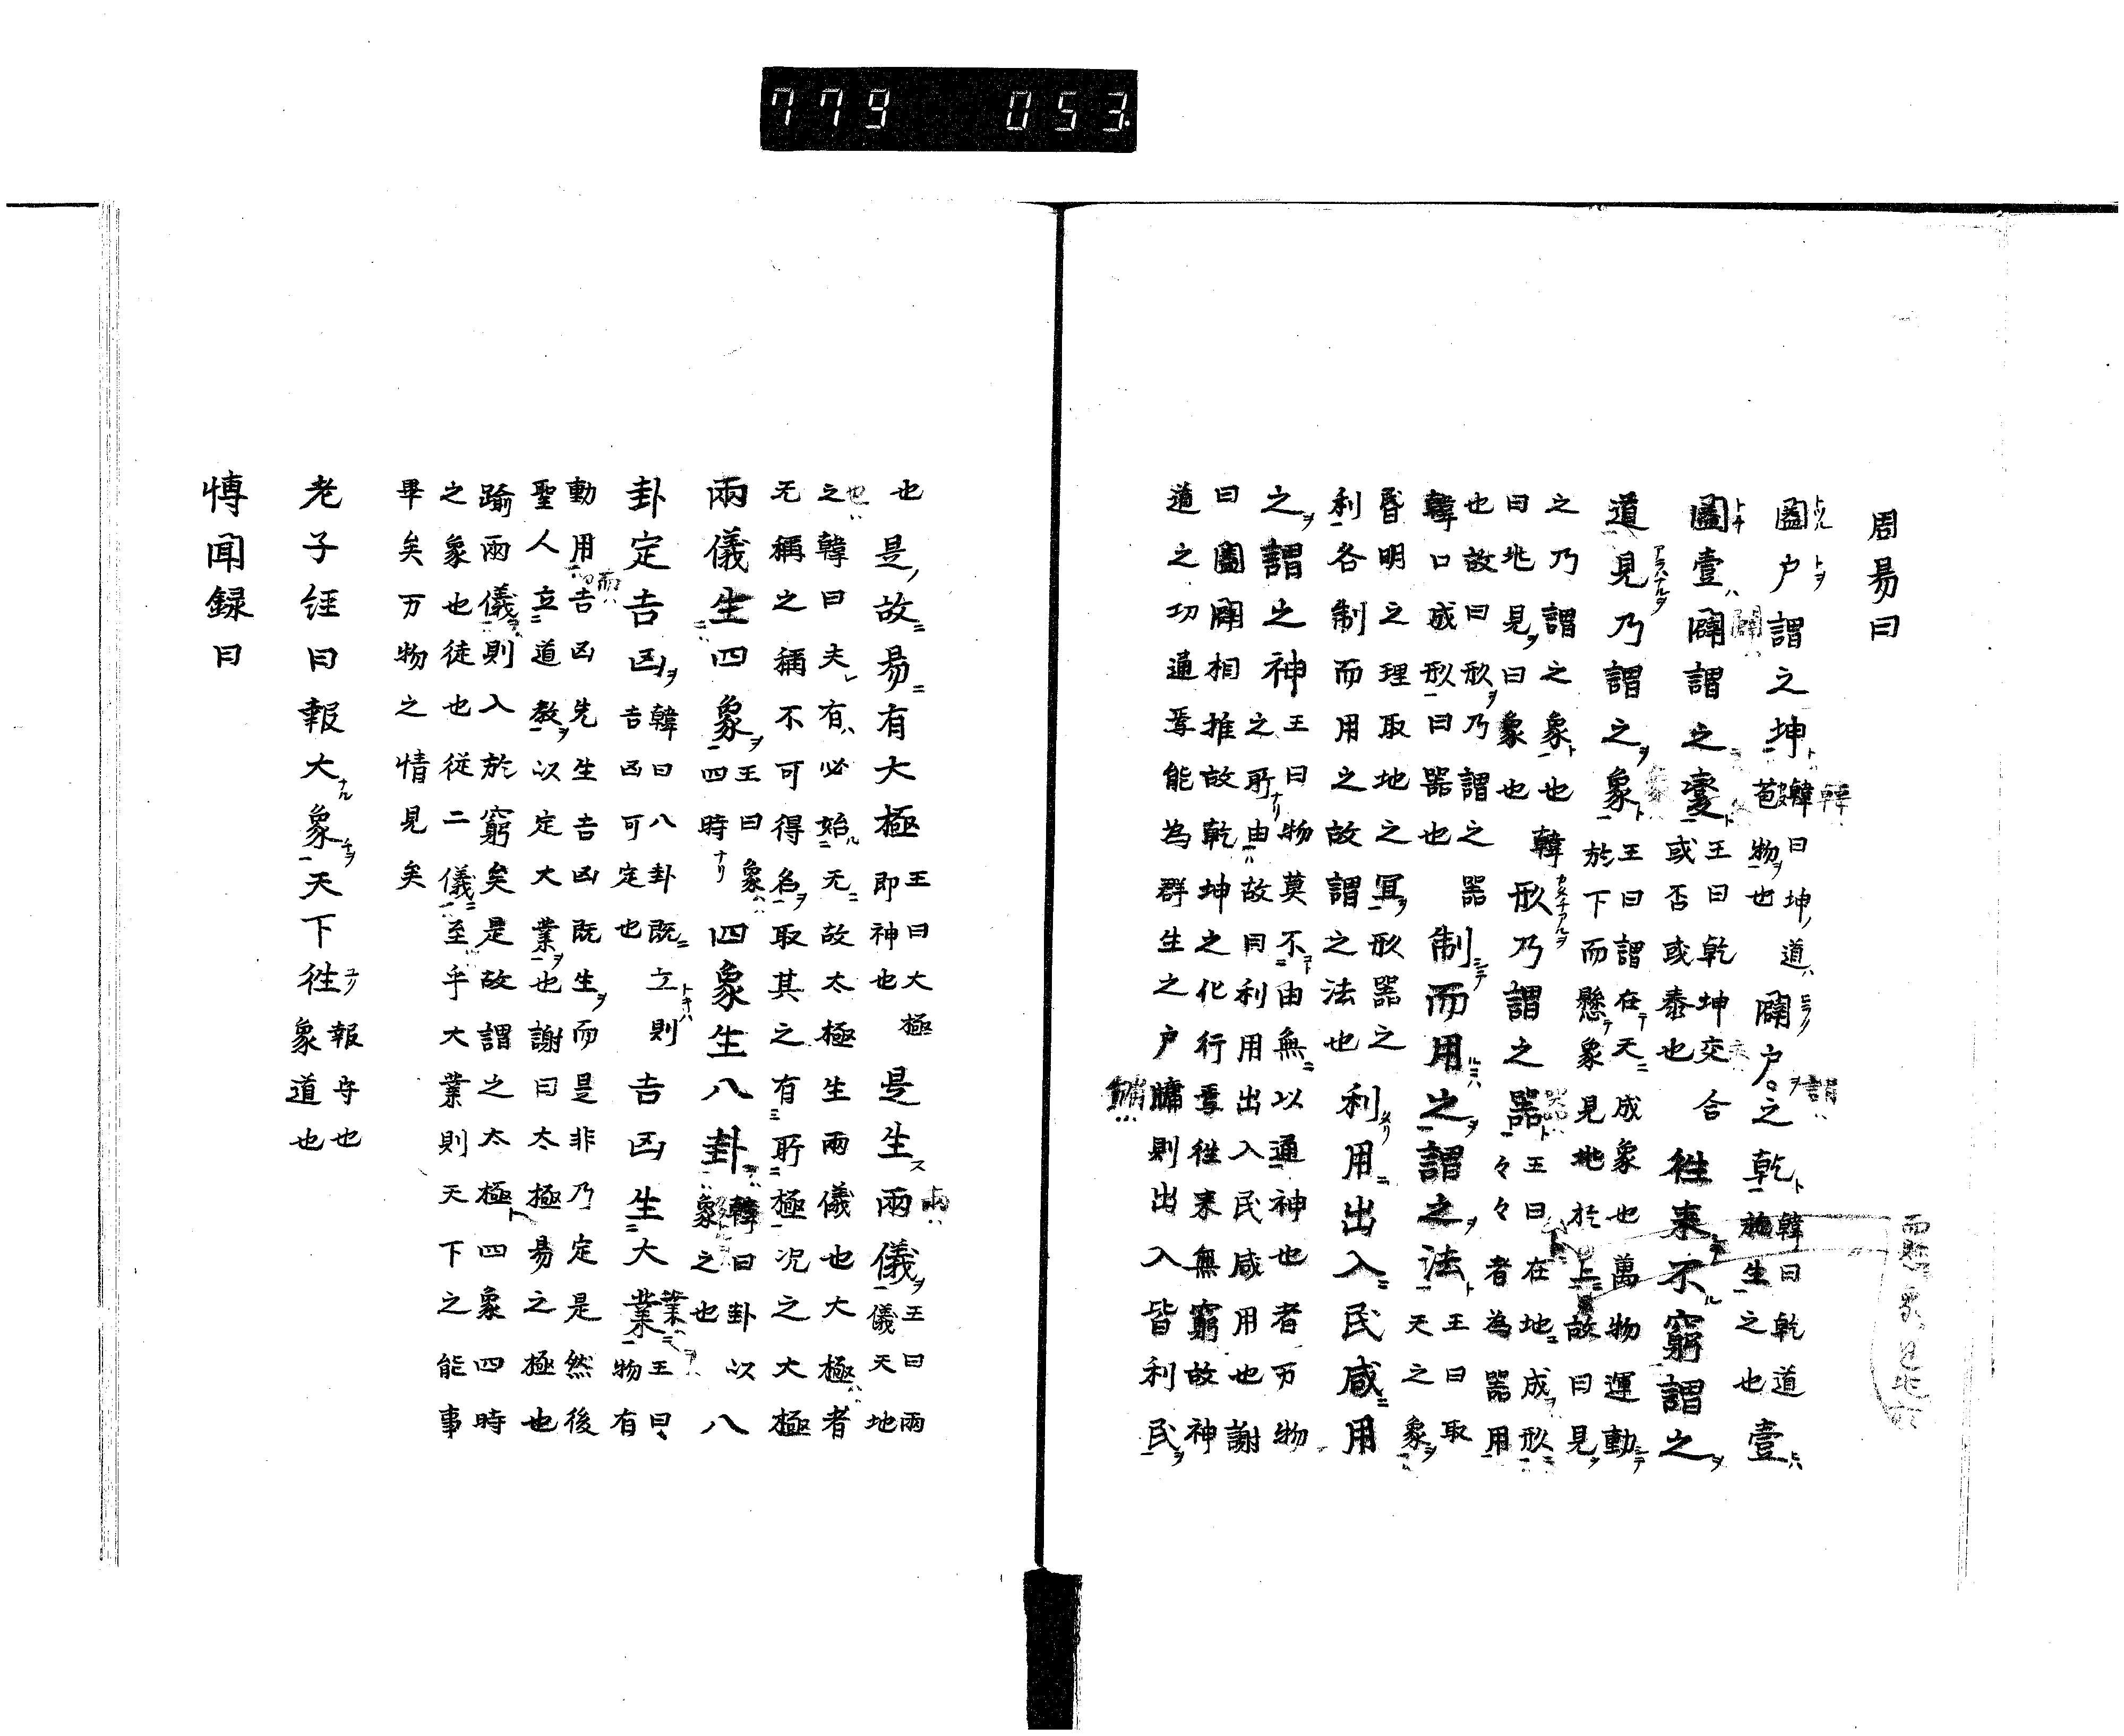 779 053
周易曰
闔户謂之坤韓曰坤道苞物也闢户〻之乾韓曰乾道施生之也壹
闔壹闢謂之變王曰乾坤交合或否或泰也徃来不窮謂之
道見乃謂之象王曰謂在天成象也萬物運動於下而懸象見地於上故曰見
之乃謂之象也韓曰兆見曰象也形乃謂之器王曰在地成形々々々者為器用
也故曰形乃謂之器韓口成形曰器也制而用之謂之法王曰取天之象
昏明之理取地之冝形器之利各制而用之故謂之法也利用出入民咸用
之謂之神王曰物莫不由無以通神也者万物之所由故曰利用出入民咸用也謝
曰闔闢相推故乾坤之化行焉徃来無窮故神道之功通焉能為群生之户牗則出入皆利民
也是故易有大極王曰大極即神也是生兩儀王曰兩儀天地
之韓曰夫有必始无故太極生兩儀也大極者无稱之稱不可得名取其之有所極况之大極
兩儀生四象王曰象四時四象生八卦韓曰卦以象之也八
卦定吉凶韓曰八卦既立則吉凶可定也吉凶生大業王曰物有
動用吉凶先生吉凶既生而是非乃定是然後聖人立道教以定大業也謝曰太極易之極也
踰兩儀則入於窮矣是故謂之太極四象四時之象也徒也從二儀至乎大業則天下之能事
畢矣万物之情見矣
老子經曰報大象天下徃報守也象道也
博聞録曰